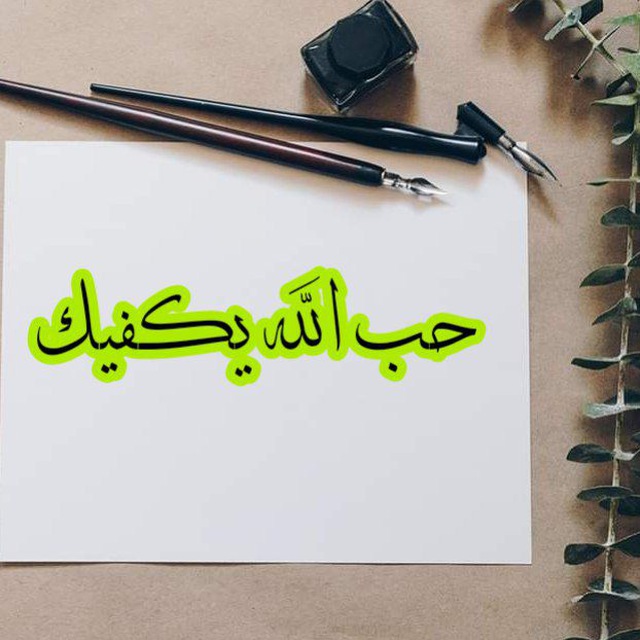 حب الله يكفيك